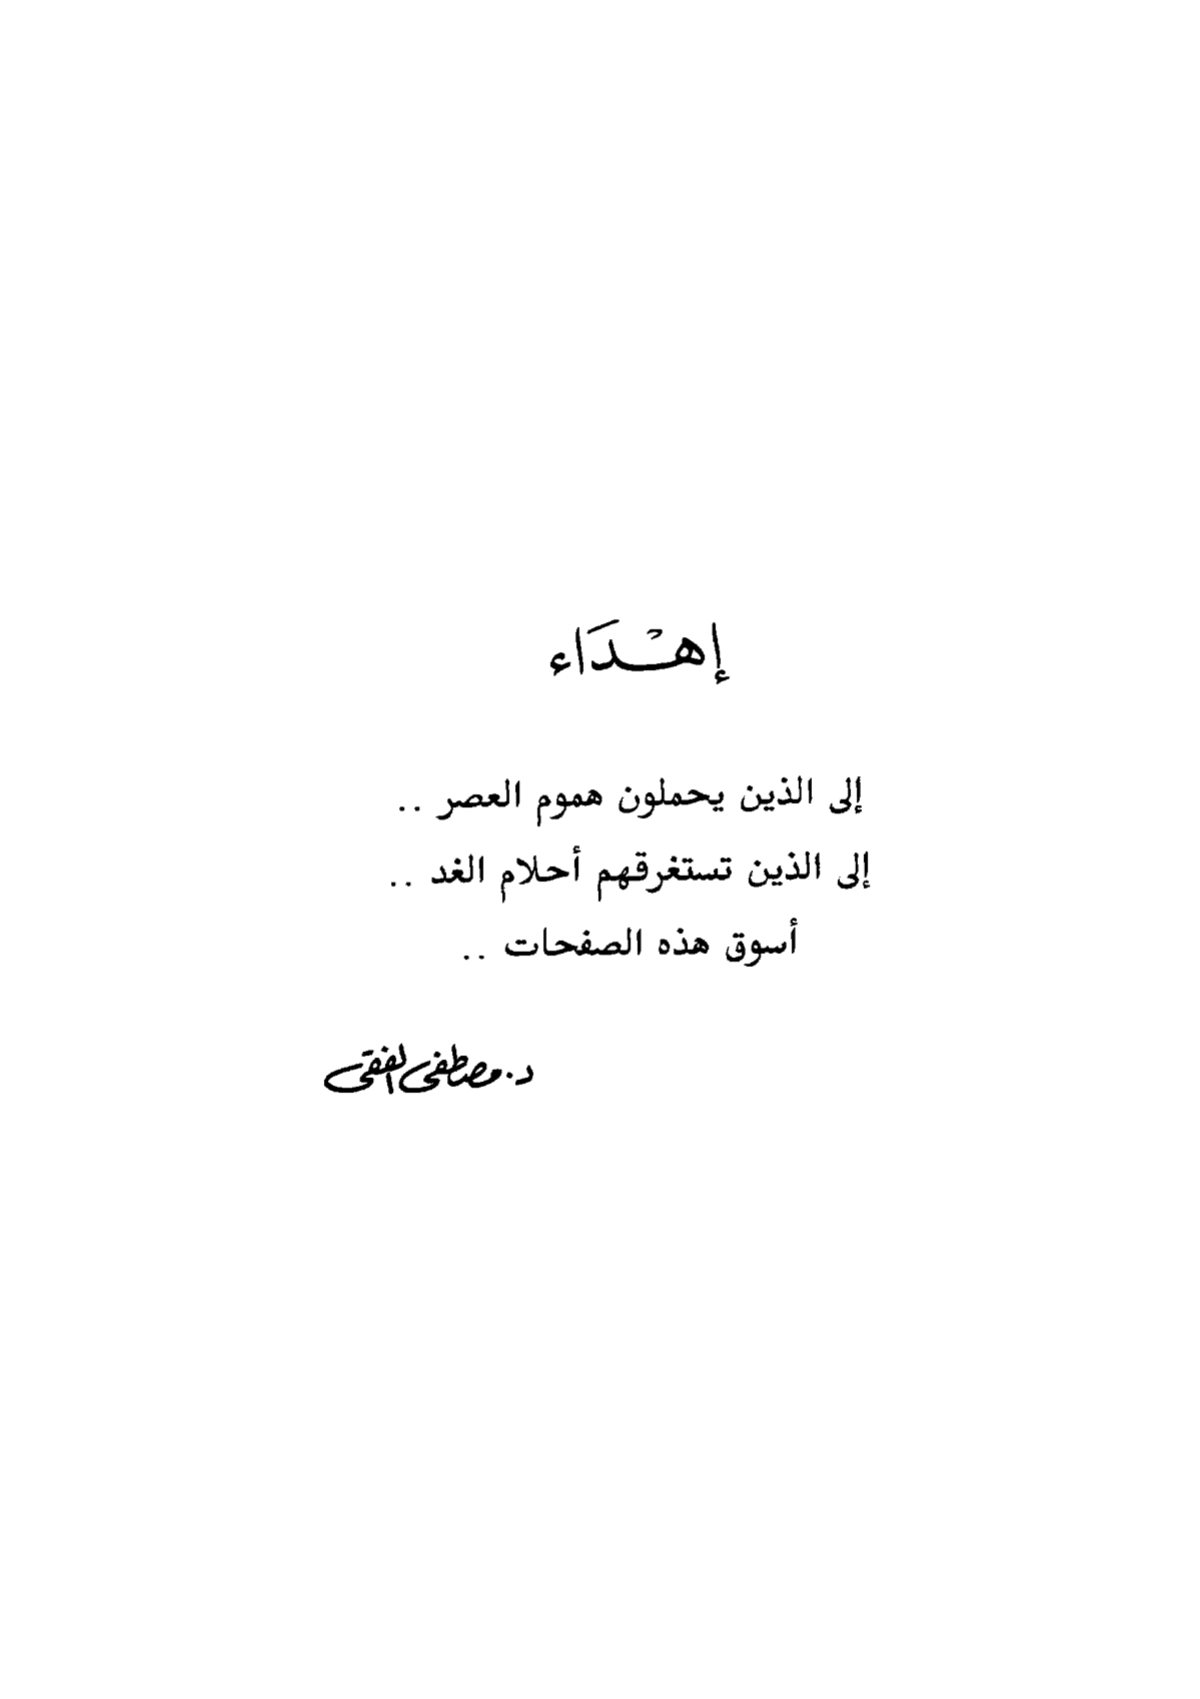 إهْدَاء
إلى الذين يحملون هموم العصر ..
إلى الذين تستغرقهم أحلام الغد ..
أسوق هذه الصفحات ..
د. مصطفى الفقى